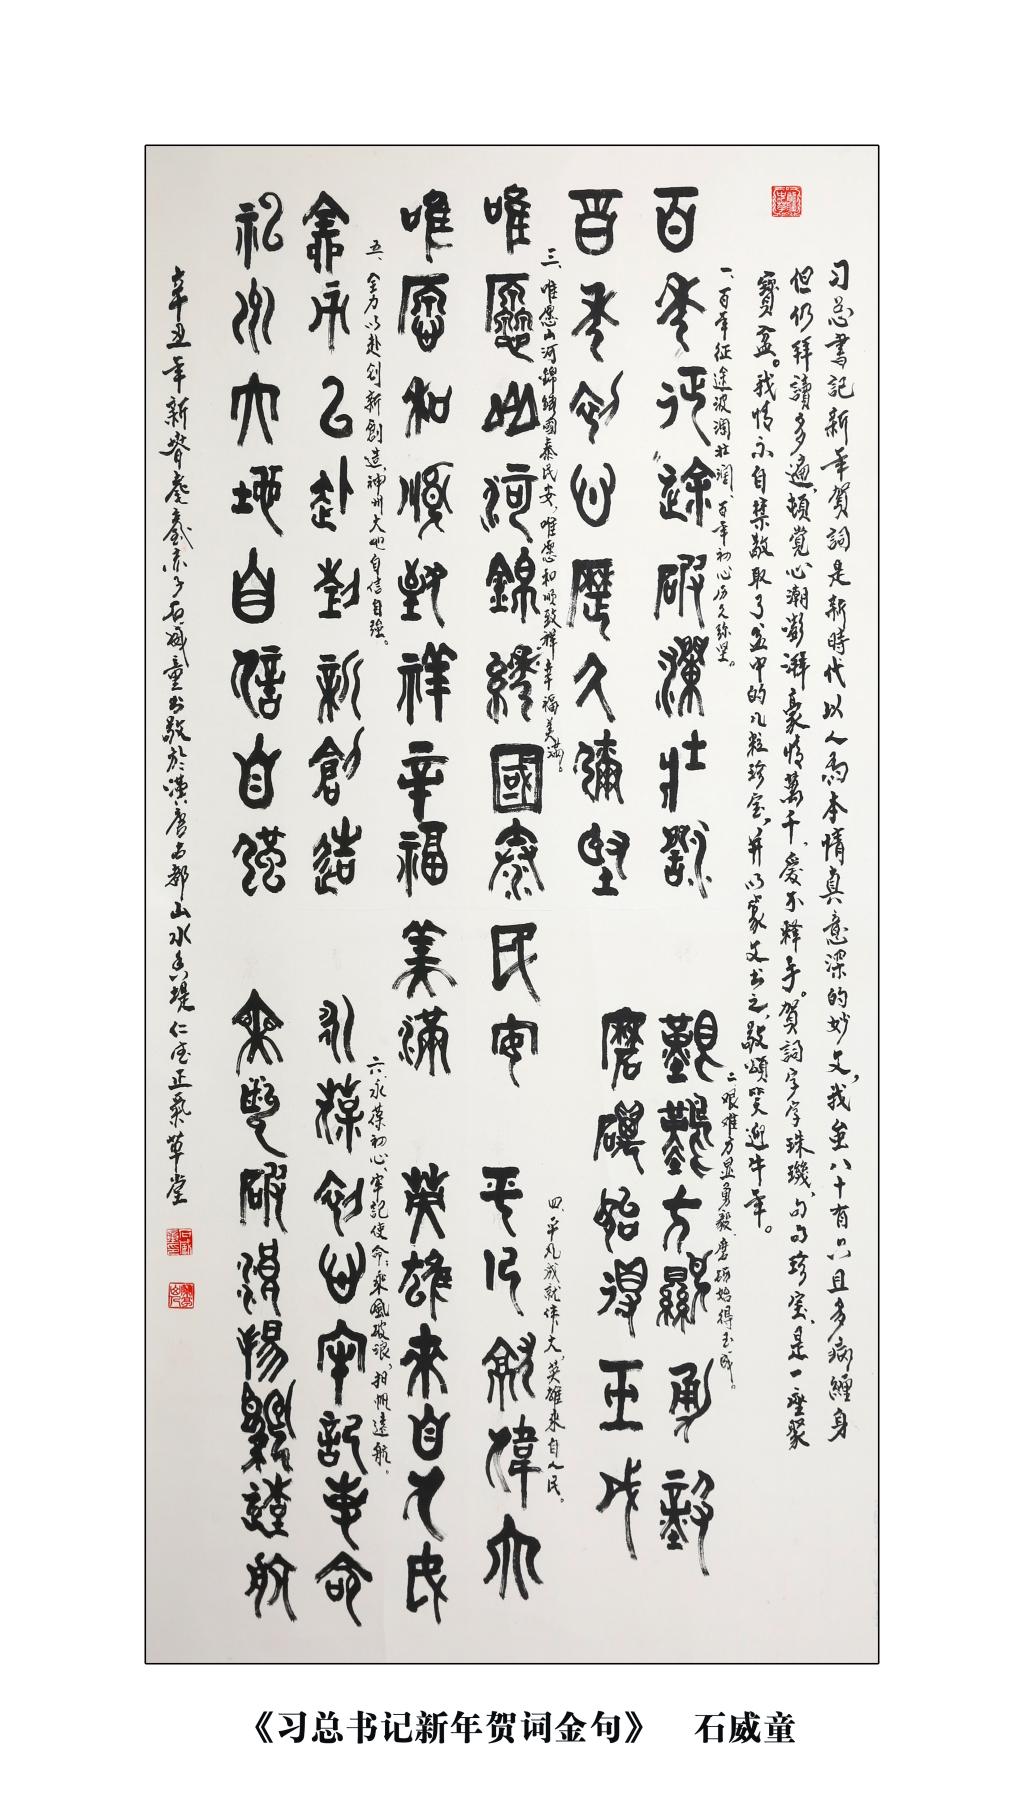 习总書記新年贺詞是新時代以人為本情真意深的妙文，我虽八十有六且多病纏身
但仍拜讀多遍，頓覚心潮澎湃豪情萬千，爱不释手。贺詞字字珠璣，句句珍宝，是一座聚
寶盆。我情不自禁敬取了盆中的几粒珍宝，并以篆文书之，敬頌笑迎牛年。
百年征途波澜壮阔
一、百年征途波澜壮阔，百年初心历久弥坚。
艱難方顯勇毅
二、艰难方显勇毅，磨砺始得玉成。
百年初心歷久彌堅
磨礪始得玉成
三、唯愿山河錦绣國泰民安，唯愿和顺致祥幸福美满。
唯愿山河錦繡國泰民安
平凡成就偉大
四、平凡成就伟大，英雄来自人民。
唯愿和順致祥幸福美滿
英雄來自人民
五、全力以赴创新創造，神州大地自信自强。
全力以赴創新創造
永葆初心牢記使命
六、永葆初心，牢記使命；乘風破浪，扬帆遠航。
神州大地自信自强
乘風破浪揚帆遠航
辛丑年新春耄耋赤子石威童书敬於漢唐古都山水香堤仁宅正氣草堂
《习总书记新年贺词金句》 石威童